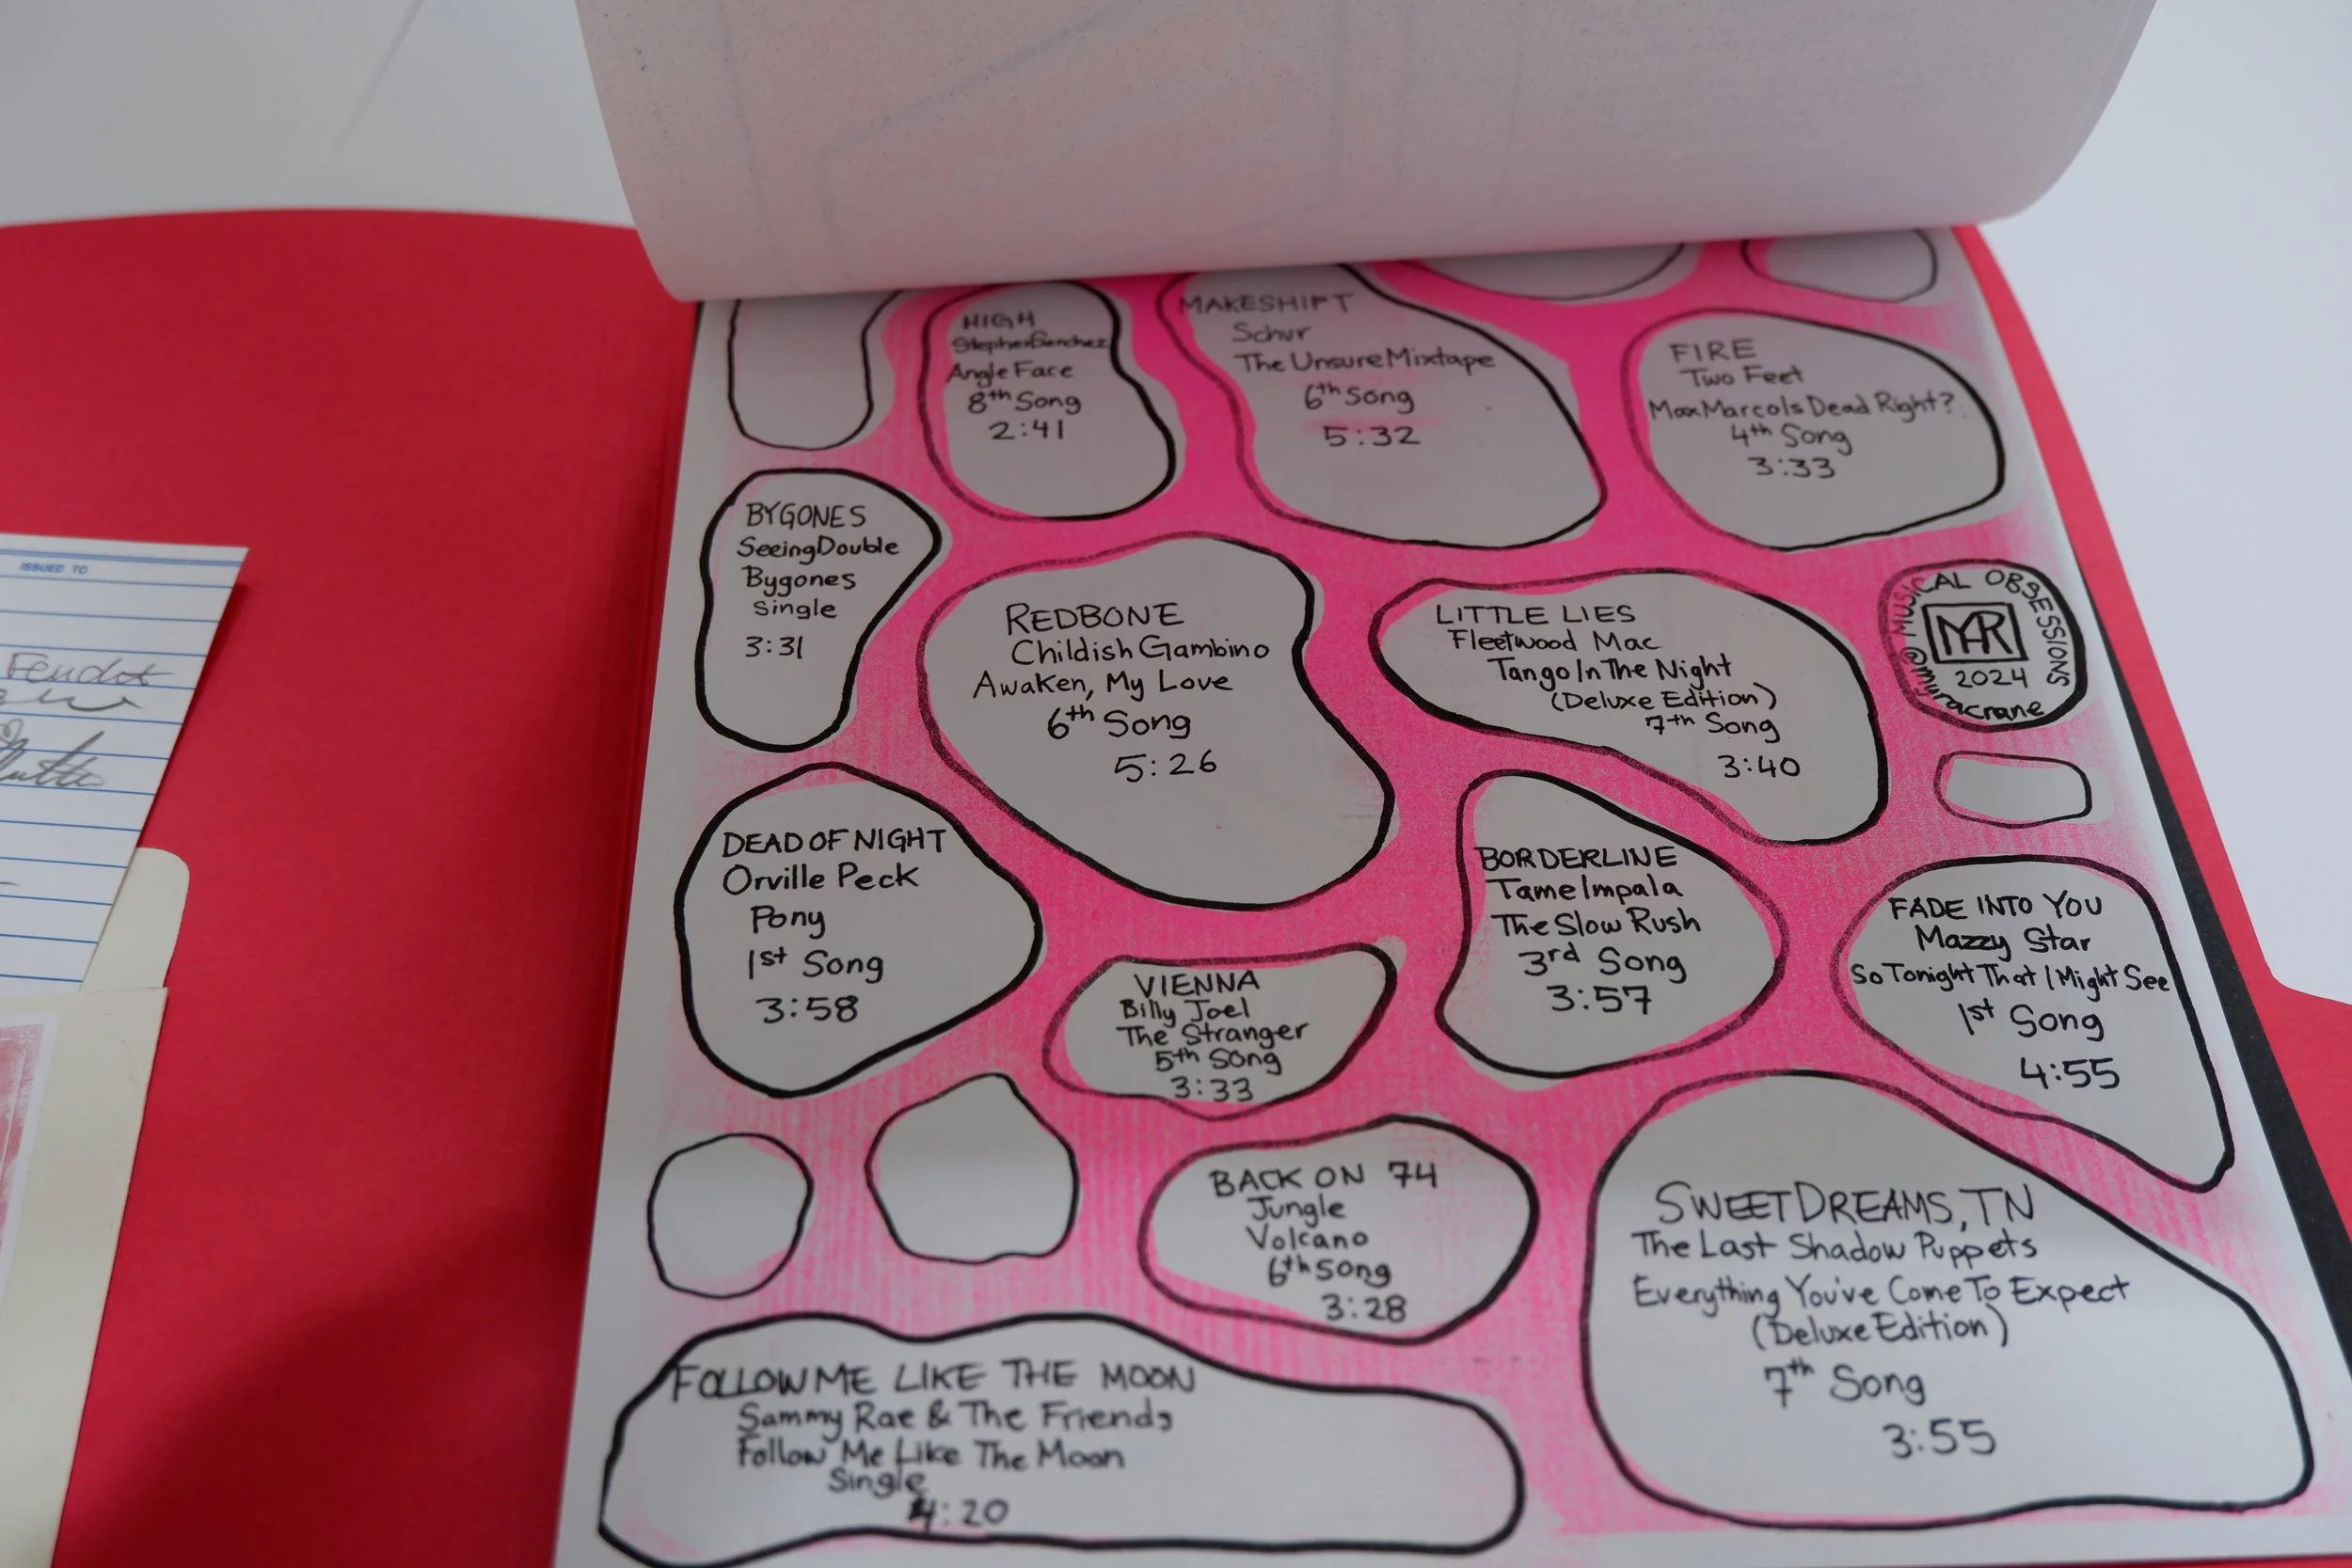 HIGH
Stephen Sanchez
Angle Face
8th Song
2:41
MAKESHIFT
Schur
The Unsure Mixtape
6th Song
5:32
FIRE
Two Feet
Max Marcols Dead Right?
4th Song
3:33
BYGONES
Seeing Double
Bygones
Single
3:31
REDBONE
Childish Gambino
Awaken, My Love
6th Song
5:26
LITTLE LIES
Fleetwood Mac
Tango In The Night
(Deluxe Edition)
7th Song
3:40
MUSICAL OBSESSIONS
2024
ISSUED TO
DEAD OF NIGHT
Orville Peck
Pony
1st Song
3:58
VIENNA
Billy Joel
The Stranger
5th Song
3:33
BORDERLINE
Tame Impala
The Slow Rush
3rd Song
3:57
FADE INTO YOU
Mazzy Star
So Tonight That I Might See
1st Song
4:55
BACK ON 74
Jungle
Volcano
6th Song
3:28
SWEET DREAMS, TN
The Last Shadow Puppets
Everything You've Come To Expect
(Deluxe Edition)
7th Song
3:55
FOLLOW ME LIKE THE MOON
Sammy Rae & The Friends
Follow Me Like The Moon
Single
4:20